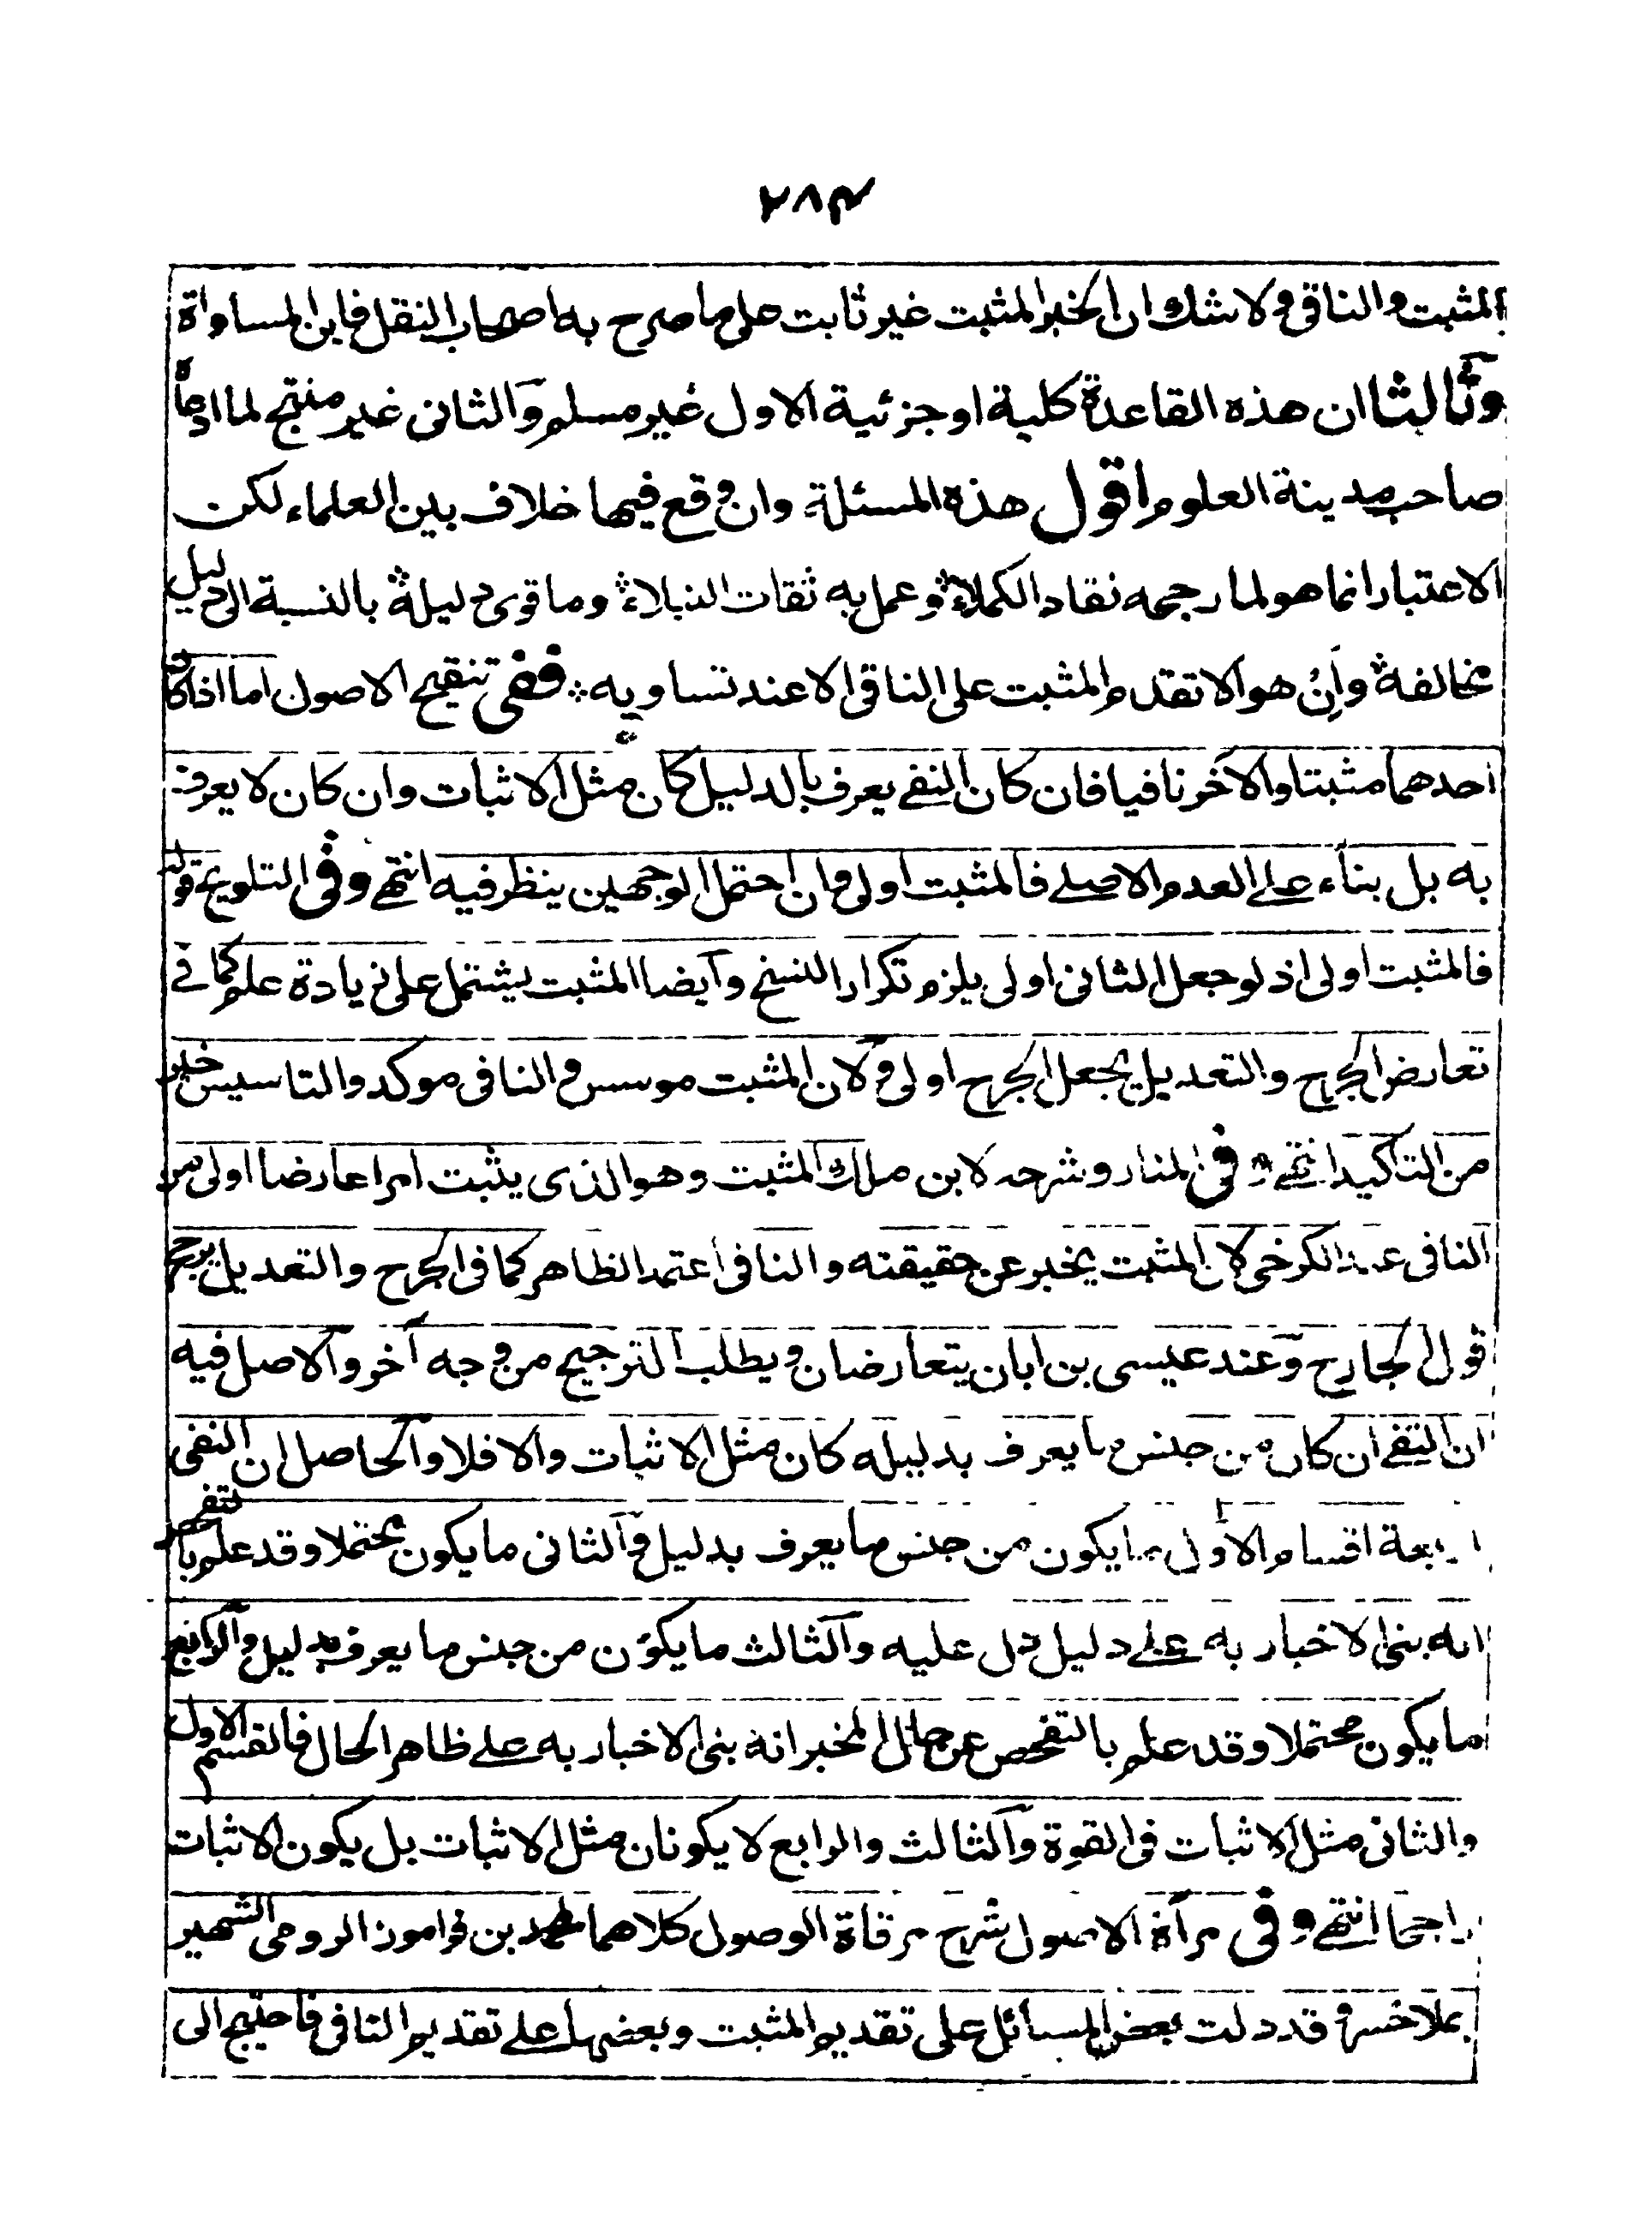 ٢٨٤
المثبت والنافى ولا شك ان الخبر المثبت غير ثابت على ما صرح به اصحاب النقل فاين المساواة
وثالثا ان هذه القاعدة كلية او جزئية الاول غير مسلم والثانى غير منتج لما ادعاه
صاحب مدينة العلوم اقول هذه المسئلة وان وقع فيها خلاف بين العلماء لكن
الاعتبار انما هو لما رجحه نقاد الكملاء وعمل به ثقات النبلاء وما قوى دليلة بالنسبة الى دليل
مخالفة وان هو الا تقدم المثبت على النافى الا عند تساويه ففى تنقيح الاصول اما اذا كان
احدهما مثبتا والآخر نافيا فان كان النفے يعرف بالدليل كان مثل الاثبات وان كان لا يعرف
به بل بناء علے العدم الاصلے فالمثبت اولى وان احتمل الوجهين ينظر فيه انتهے وفى التلويح قوله
فالمثبت اولى اذ لو جعل الثانى اولى يلزم تكرار النسخ وآيضا المثبت يشتمل على زيادة علم كما فے
تعارض الجرح والتعديل يجعل الجرح اولى ولان المثبت موسس والنافى موكد والتاسيس خير
من التاكيد انتهے وفى المنار وشرحه لابن ملك المثبت وهو الذى يثبت امرا عارضا اولى من
النافى عند الكرخى لان المثبت يخبر عن حقيقته والنافى اعتمد الظاهر كما فى الجرح والتعديل يرجح
قول الجارح وعند عيسى بن ابان يتعارضان ويطلب الترجيح من وجه آخر والاصل فيه
ان النفے ان كان من جنس ما يعرف بدليله كان مثل الاثبات والا فلا والحاصل ان النفى
اربعة اقسام الاول ما يكون من جنس ما يعرف بدليل والثانى ما يكون محتملا وقد علم بالتفحص
انه بنى الاخبار به علے دليل دل عليه والثالث ما يكون من جنس ما يعرف بدليل والرابع
ما يكون محتملا وقد علم بالتفحص عن حال المخبر انه بنى الاخبار به علے ظاهر الحال فالقسم الاول
والثانى مثل الاثبات فى القوة والثالث والرابع لا يكونان مثل الاثبات بل يكون الاثبات
راجحا انتهے وفى مرآة الاصول شرح مرقاة الوصول كلاهما لمحمد بن فراموز الرومى الشهير
بملا خسرو قد دلت بعض المسائل على تقديم المثبت وبعضها علے تقديم النافى فاحتيج الى